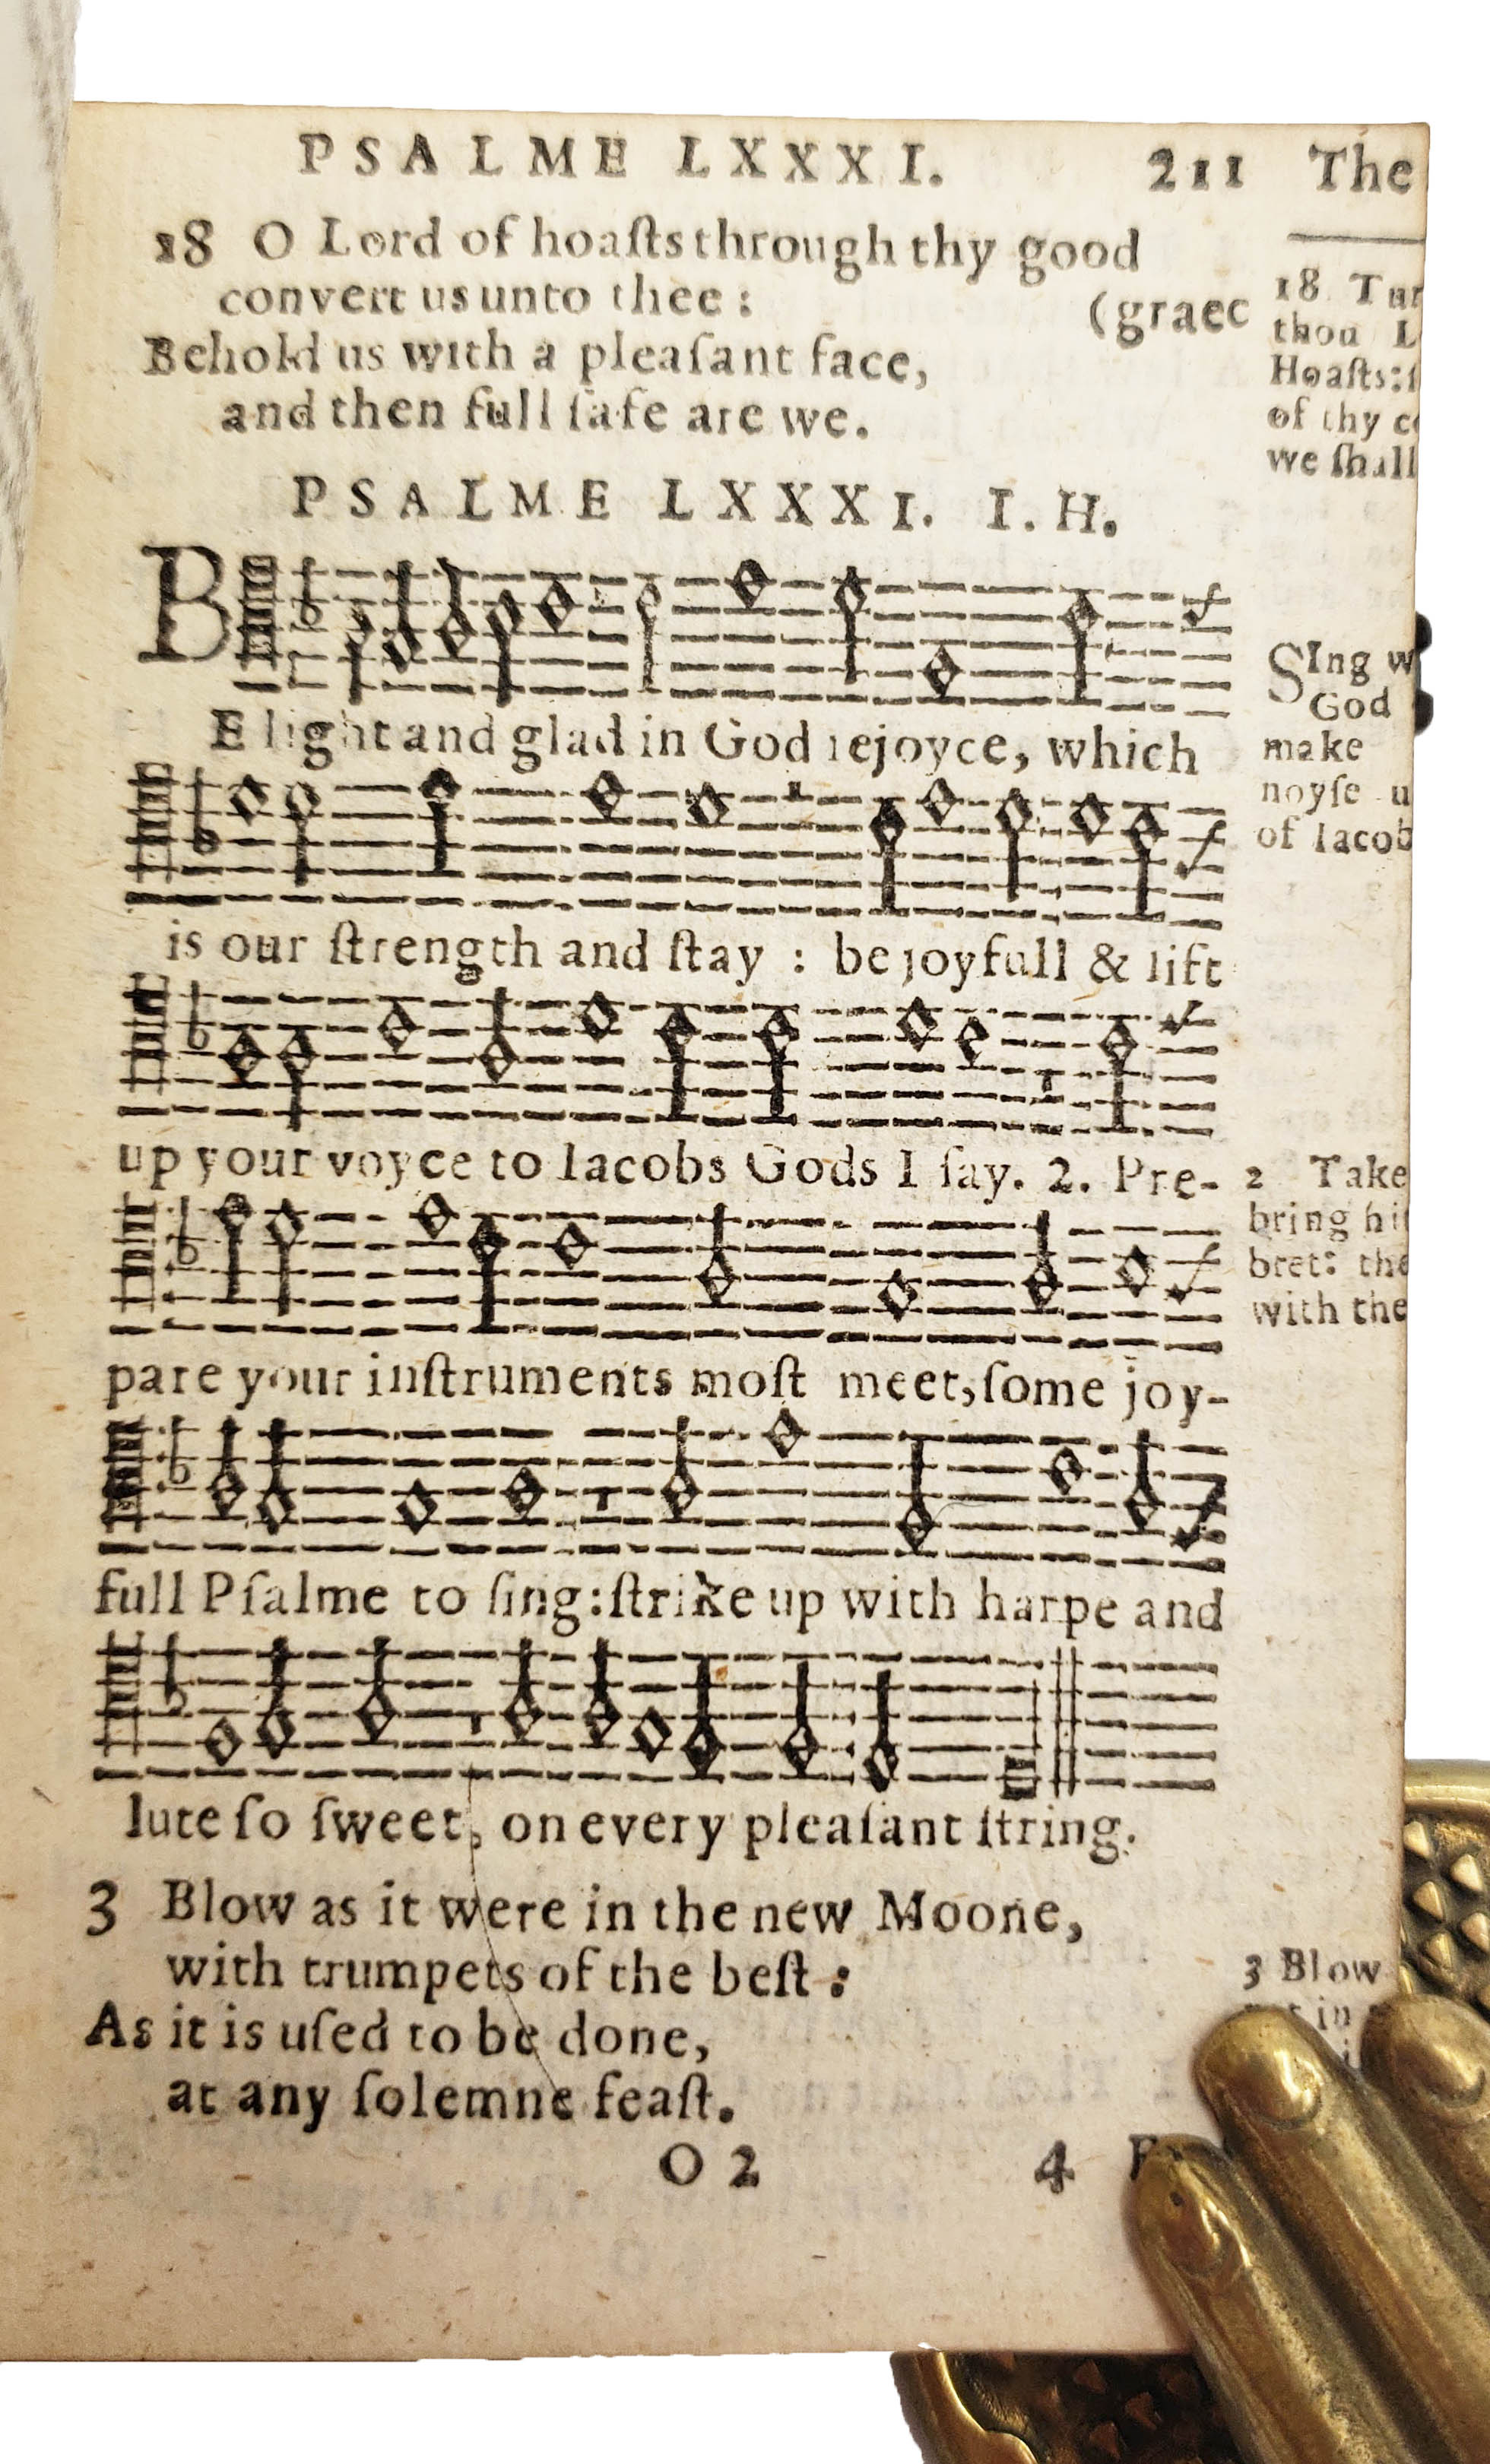 PSALME LXXXI. 211 The
18 O Lord of hoaſts through thy good
convert us unto thee : (graec
Behold us with a pleaſant face,
and then full ſafe are we.
PSALME LXXXI. I. H.
BE light and glad in God rejoyce, which
is our ſtrength and ſtay : be joyfull & lift
up your voyce to Iacobs Gods I ſay. 2. Pre-
pare your inſtruments moſt meet, ſome joy-
full Pſalme to ſing: ſtrike up with harpe and
lute ſo ſweet, on every pleaſant ſtring.
3 Blow as it were in the new Moone,
with trumpets of the beſt :
As it is uſed to be done,
at any ſolemne feaſt.
O 2 4
18 Tur
thou L
Hoaſts:
of thy
we ſhall
SIng w
God
make
noyſe u
of Iacob
2 Take
bring hi
bret: the
with the
3 Blow
in